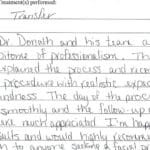 Treatment(s) performed:
Transfer
Dr. Donath and his team a
pitome of professionalism. Th
explained the process and reco
procedure with realistic expec
indness. The day of the proce
smoothly and the follow-up
re much appreciated. I'm happ
sults and would highly recomm
to anyone seeking a facial pr